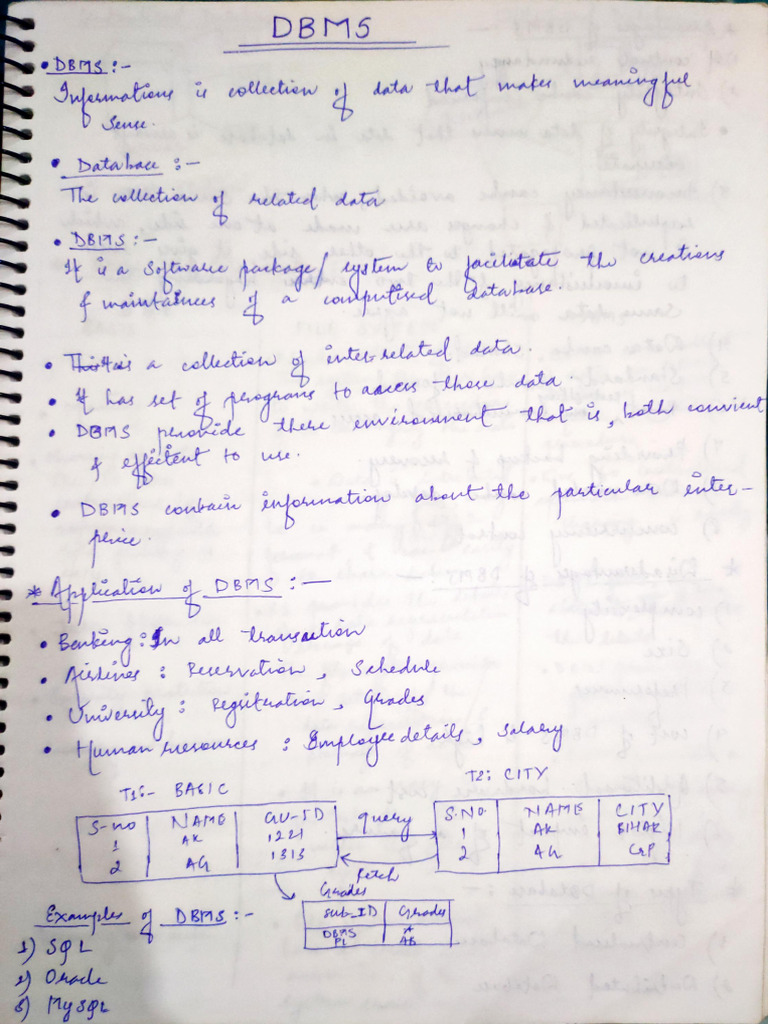 DBMS
• DBMS :-
Informations is collection of data that makes meaningful
sense.
• Database :-
The collection of related data
• DBMS :-
It is a software package/ system to facilitate the creations
& maintainces of a computised database.
• is a collection of inter-related data.
• It has set of programs to access those data.
• DBMS provide there environment that is, both convient
& effectent to use.
• DBMS contain information about the particular inter-
price.
* Application of DBMS :-
• Banking : In all transaction
• Airlines : Reservation, Schedule
• University : Regsitration, Grades
• Human resources : Employee details, salary
T1:- BASIC T2: CITY
S-no NAME GU-ID query S.NO. NAME CITY
1 AK 1221 1 AK BIHAR
2 AG 1313 2 AG
fetch
Grades
Sub_ID Grades
DBMS A
PL AB
Examples of DBMS :-
1) SQL
2) Oracle
3) MySQL